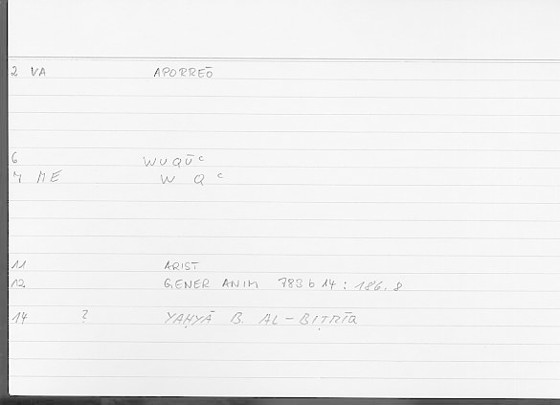 2 VA APORREŌ
6 WUQŪʿ
7 ME W Q ʿ
11 ARIST
12 GENER ANIM 783 b 14 : 186.8
14 ? YAḤYĀ B. AL-BIṬRĪQ